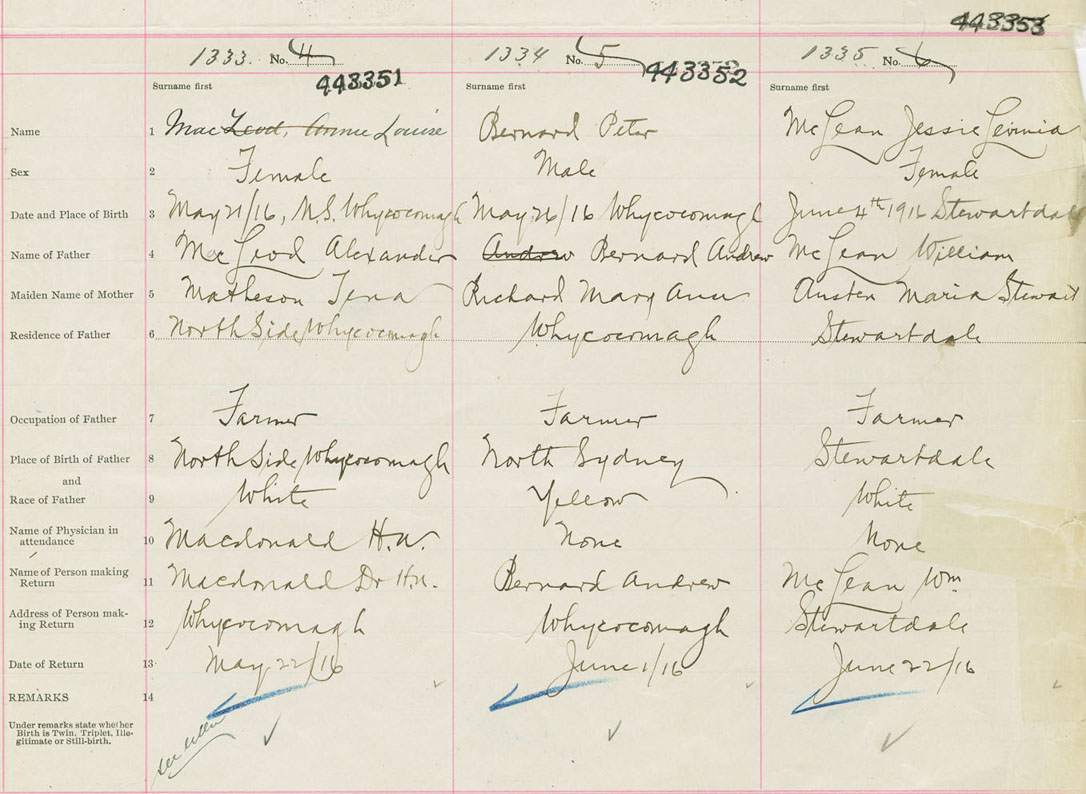 443353
1333. No. 4 1334 No. 5 1335 No. 6
443351 443352
Surname first Surname first Surname first
Name 1 MacLeod, Annie Louise Bernard Peter McLean Jessie
Sex 2 Female Male Female
Date and Place of Birth 3 May 21/16, N.S. Whycocomagh May 26/16 Whycocomagh June 4th 1916 Stewartdale
Name of Father 4 McLeod Alexander Andrew Bernard Andrew McLean William
Maiden Name of Mother 5 Matheson Tena Richard Mary Ann Austen Maria Stewart
Residence of Father 6 North Side Whycocomagh Whycocomagh Stewartdale
Occupation of Father 7 Farmer Farmer Farmer
Place of Birth of Father 8 North Side Whycocomagh North Sydney Stewartdale
and
Race of Father 9 White Yellow White
Name of Physician in
attendance 10 Macdonald H.N. None None
Name of Person making
Return 11 Macdonald Dr H.N. Bernard Andrew McLean Wm
Address of Person mak-
ing Return 12 Whycocomagh Whycocomagh Stewartdale
Date of Return 13 May 22/16 June 1/16 June 22/16
REMARKS 14
Under remarks state whether
Birth is Twin, Triplet, Ille-
gitimate or Still-birth.